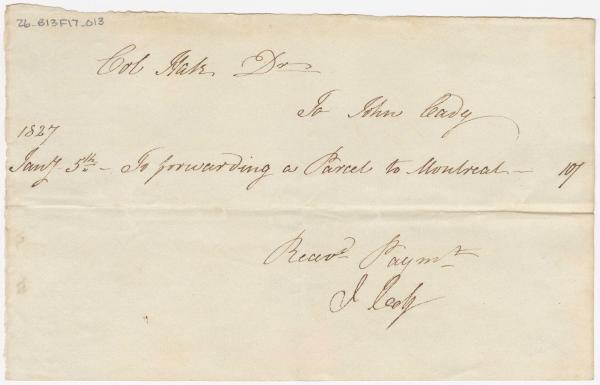 26_B13F17_013
Col Hale Dr
To John Cady
1827
Jany 5th - To forwarding a Parcel to Montreal - 10/
Recevd Paymt
J Cady